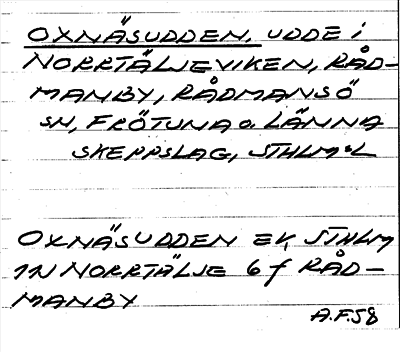 OXNÄSUDDEN, UDDE i
NORRTÄLJEVIKEN, RÅD-
MANBY, RÅDMANSÖ
SN, FRÖTUNA o. LÄNNA
SKEPPSLAG, STHLMSL
OXNÄSUDDEN EK, STHLM
1N NORRTÄLJE 6 f RÅD-
MANBY
A.F.58